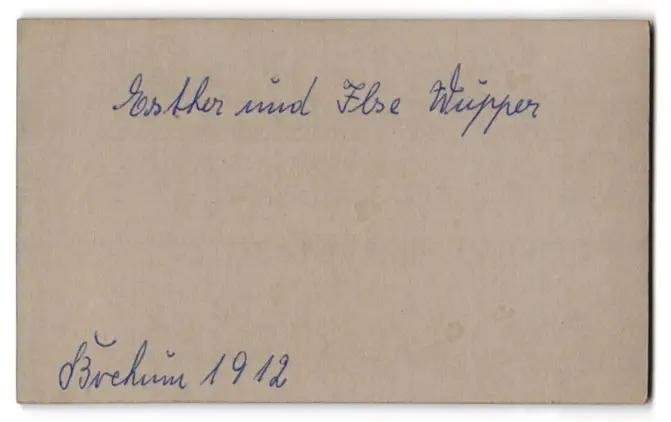 Esther und Ilse Wüpper
Bochum 1912